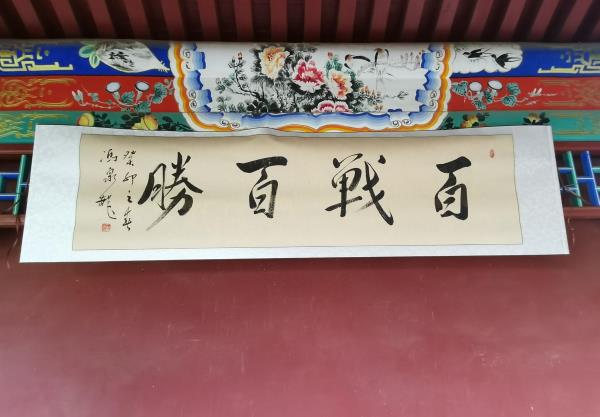 百戰百勝
癸卯之春
馮泉